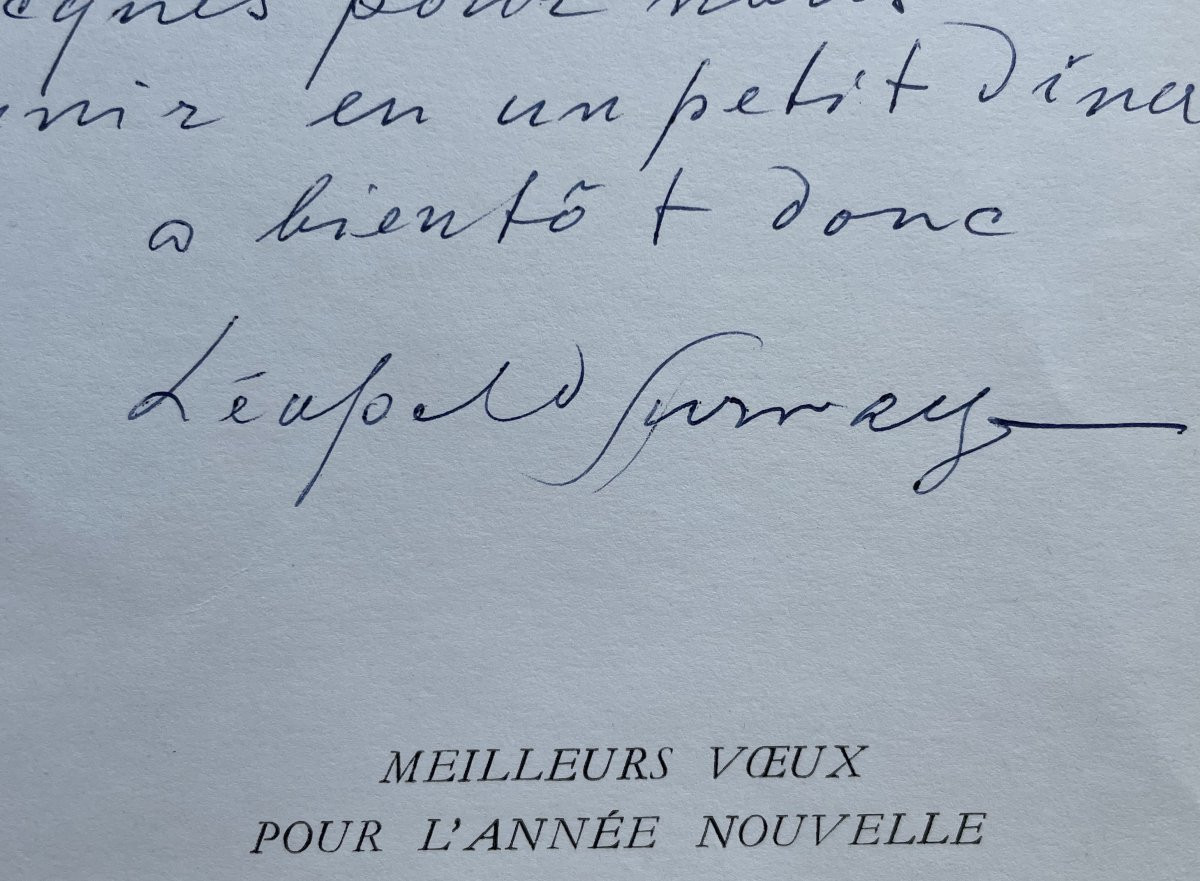 pour nous
en un petit dîner
a bientôt donc
Léopold Survage
MEILLEURS VŒUX
POUR L'ANNÉE NOUVELLE